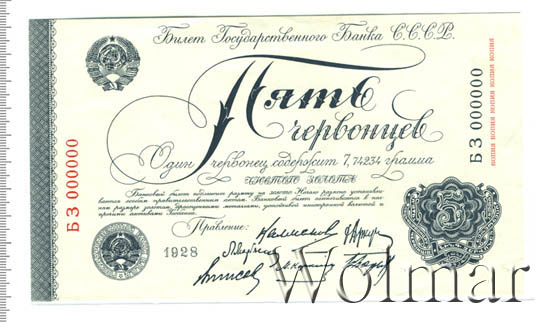 Билет Государственного Банка С.С.С.Р.
Пять
червонцев
Один червонец содержит 7,74234 грамма
чистого золота
Банковый билет подлежит размену на золото. Начало размена устанавли-
вается особым правительственным актом. Банковый билет обеспечивается в пол-
ном размере золотом, драгоценными металлами, устойчивой иностранной валютой и
прочими активами Госбанка.
Правление:
1928
5
БЗ 000000
БЗ 000000
копия копия копия копия копия
Wolmar